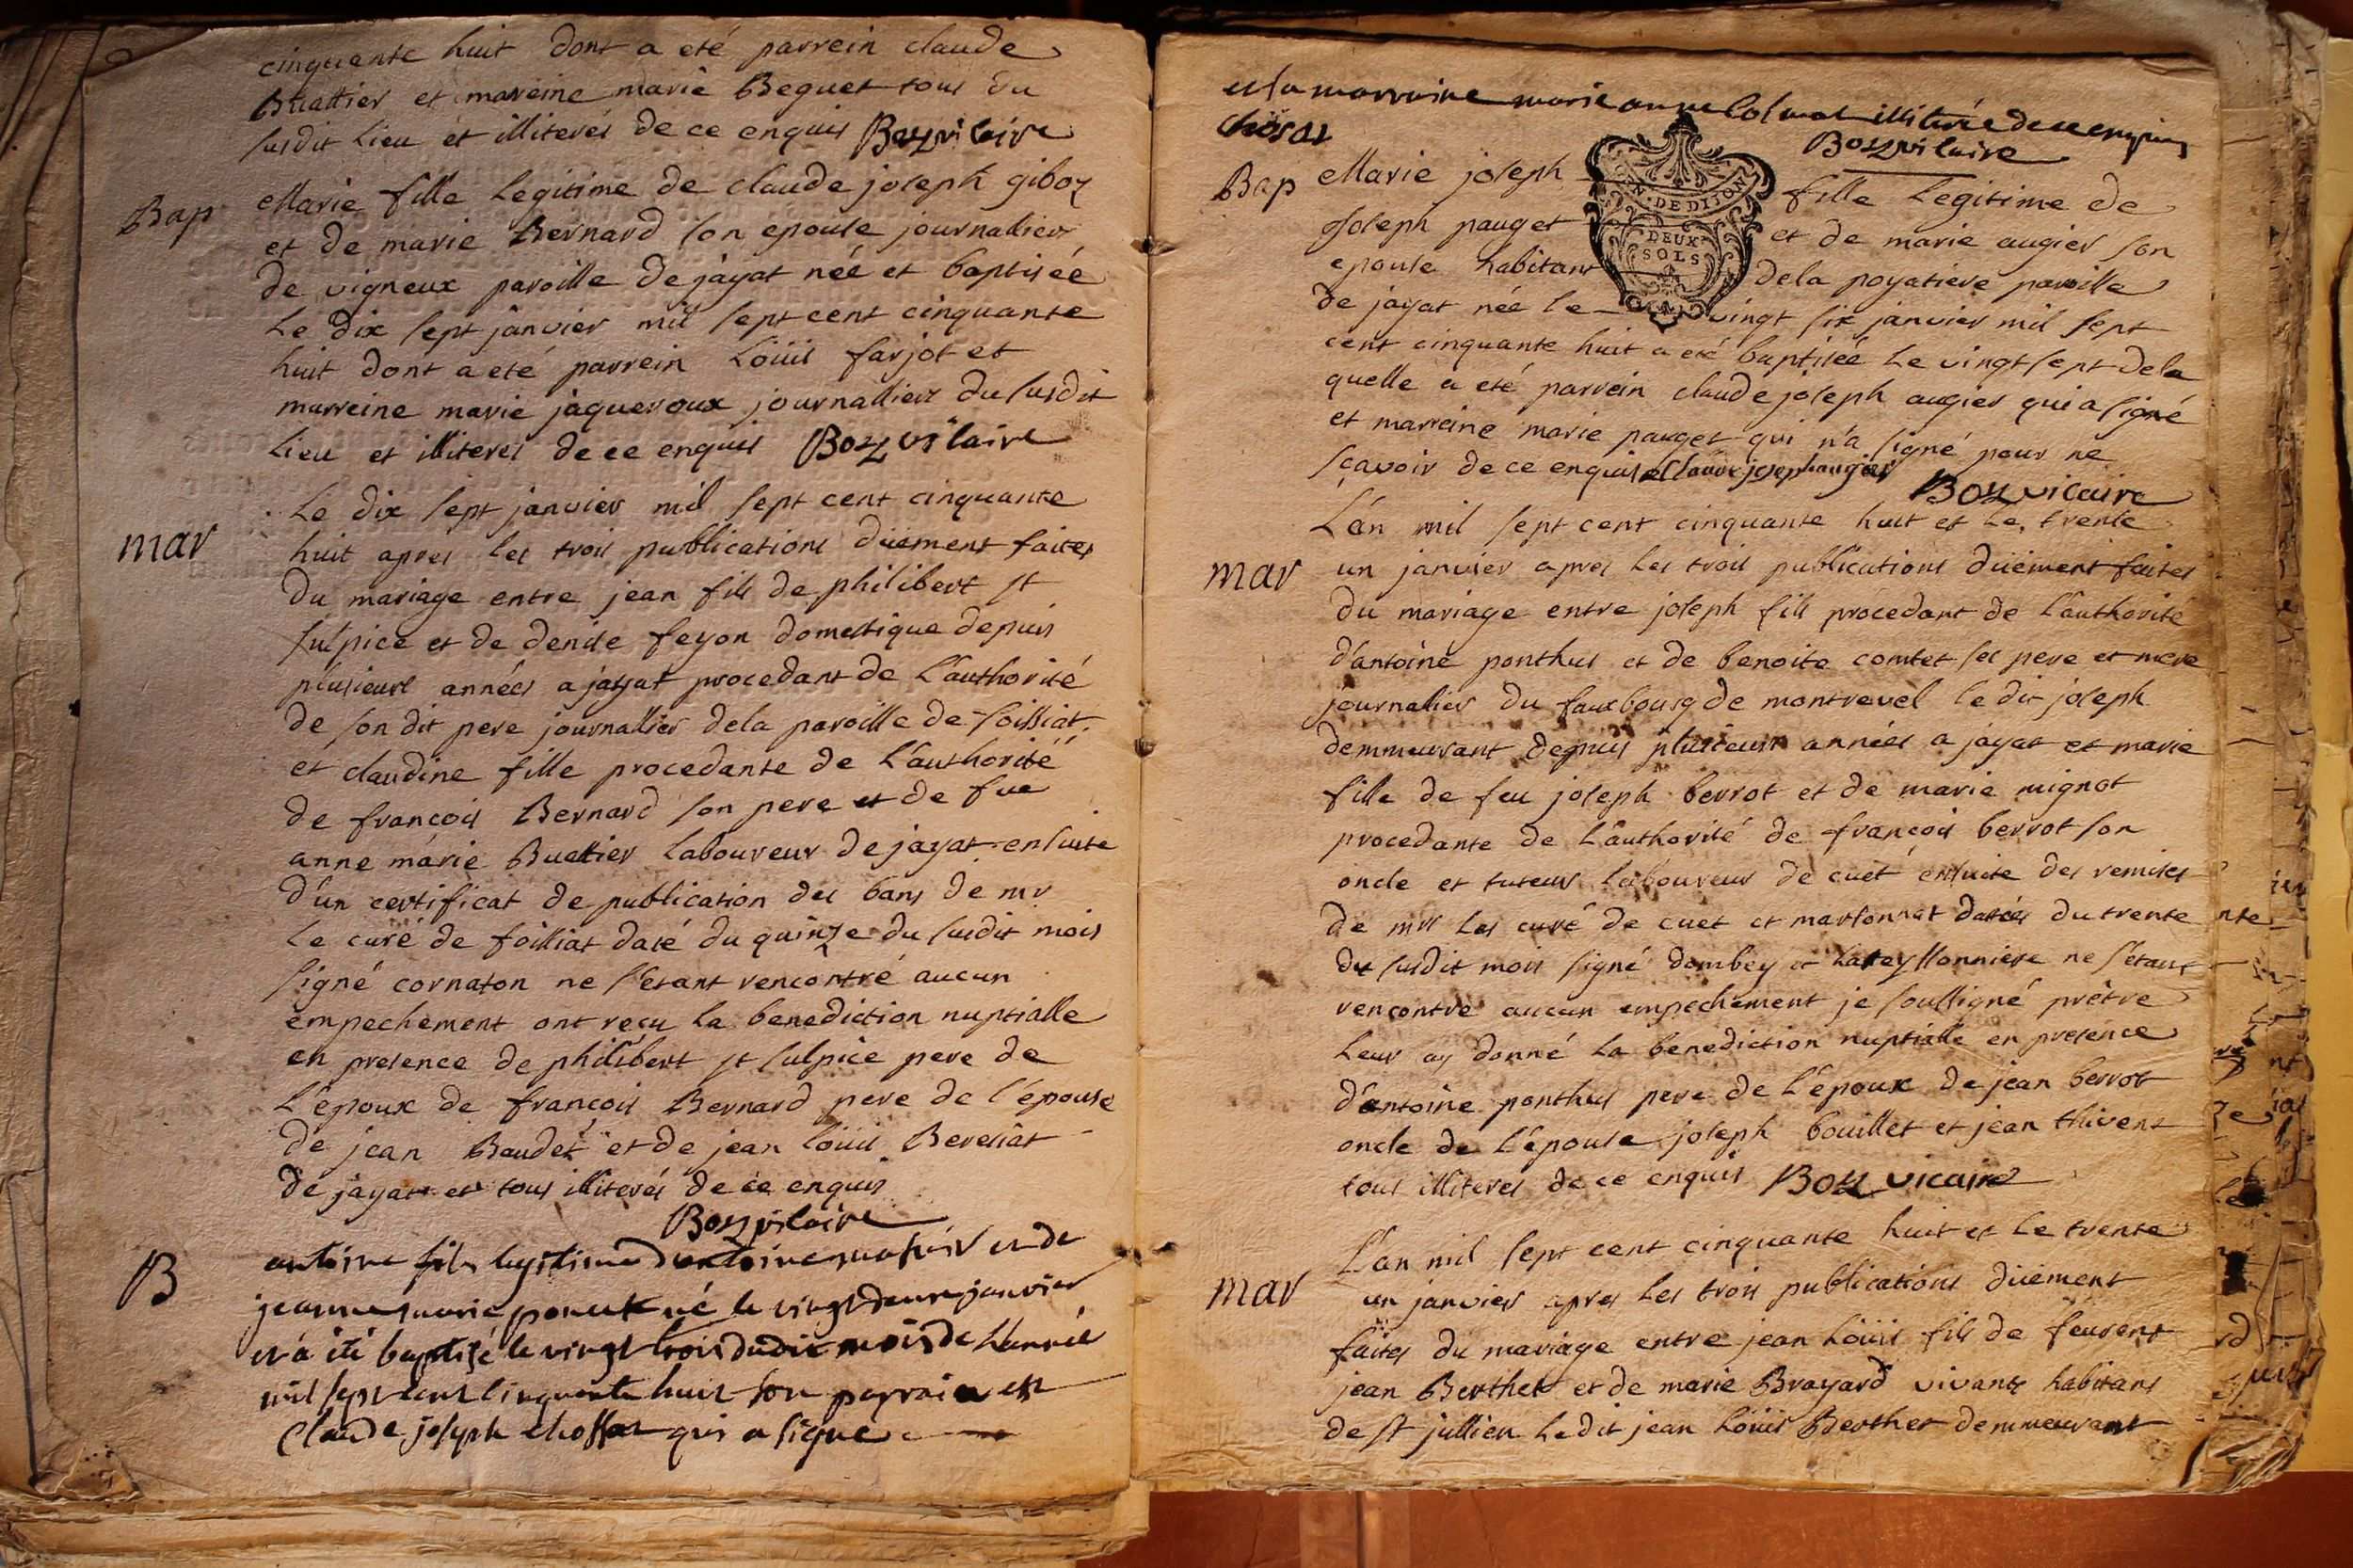 cinquante huit dont a eté parrein claude
Buattier et mareine marie Beguet tous du
susdit Lieu et illiterés de ce enquis Boz vicaire
Bap
Marie fille Legitime de claude joseph giboz
et de marie Bernard son epouse journallier
de vigneux paroisse de jayat née et baptisée
Le dix sept janvier mil sept cent cinquante
huit dont a eté parrein Loüis farjot et
marreine marie jaqueroux journalliers du susdit
Lieu et illiterés de ce enquis Boz vicaire
mar
Le dix sept janvier mil sept cent cinquante
huit aprés les trois publications düement faites
du mariage entre jean fils de philibert st
sulpice et de denise feyon domestique depuis
plusieurs années a jayat procedant de L'authorité
de son dit pere journallier dela paroisse de foissiat
et claudine fille procedante de L'authorité
de francois Bernard son pere et de fue
anne marie Buattier Laboureur de jayat ensuite
d'un certificat de publication des bans de mr
Le curé de foissiat daté du quinze du susdit mois
signé cornaton ne s'etant rencontré aucun
empechement ont reçu La benediction nuptialle
en presence de philibert st sulpice pere de
L'époux de francois Bernard pere de l'épouse
de jean Baudet et de jean Loüis Beresiat
de jayat et tous illiterés de ce enquis
Boz vicaire
B
antoine fils legitime d'antoine et de
jeanne marie né le vingt deux janvier
et a été baptisé le vingt trois dudit mois de l'année
mil sept cent cinquante huit son parrain est
Claude joseph chossat qui a signe
et la marraine marie anne illiterée de ce enquise
chosat
Boz vicaire
Bap
Marie joseph fille Legitime de
Joseph pauget et de marie augier son
epouse habitant dela poyatiere paroisse
de jayat née le vingt six janvier mil sept
cent cinquante huit a eté baptisée Le vingt sept dela
quelle a eté parrein claude joseph augier qui a signé
et marreine marie pauget qui n'a signé pour ne
sçavoir de ce enquise Claude joseph augier
Boz vicaire
GEN. DE DIJON
DEUX
SOLS
mar
L'an mil sept cent cinquante huit et Le trente
un janvier apres Les trois publications düement faites
du mariage entre joseph fils procedant de L'authorité
d'antoine ponthus et de benoite comtet ses pere et mere
journalier du fauxbourg de montrevel le dit joseph
demmeurant depuis plusieurs années a jayat et marie
fille de feu joseph berrot et de marie mignot
procedante de L'authorité de françois berrot son
oncle et tuteur Laboureur de cuet ensuite des remises
de mrs Les curé de cuet et marsonnat datées du trente
du susdit mois signé dombey et Lateyssonniere ne s'etant
rencontré aucun empechement je soussigné prêtre
Leur ay donné La benediction nuptialle en presence
d'antoine ponthus pere de L'époux de jean berrot
oncle de L'épouse joseph bouillet et jean thivent
tous illiterés de ce enquis Boz vicaire
mar
L'an mil sept cent cinquante huit et Le trente
un janvier apres Les trois publications düement
faites du mariage entre jean Loüis fils de feurent
jean Berthet et de marie Brayard vivants habitans
de st jullien Le dit jean Loüis Berthet demmeurant